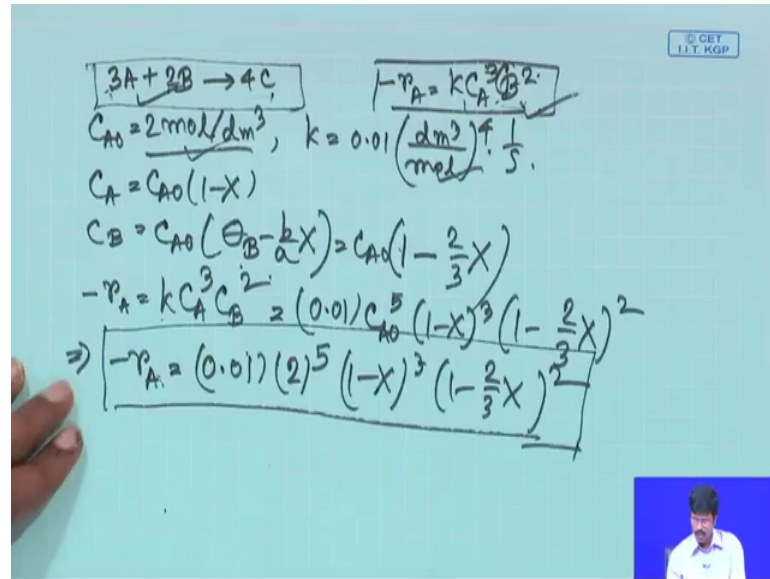 © CET
I.I.T. KGP
3A + 2B → 4C
-rA = kCA^3CB^2
CA0 = 2mol/dm^3, k = 0.01 (dm^3/mol)^4 · 1/s.
CA = CA0(1-X)
CB = CA0(θB - b/a X) = CA0(1 - 2/3 X)
-rA = kCA^3CB^2 = (0.01) CA0^5 (1-X)^3 (1 - 2/3 X)^2
⇒ -rA = (0.01) (2)^5 (1-X)^3 (1 - 2/3 X)^2